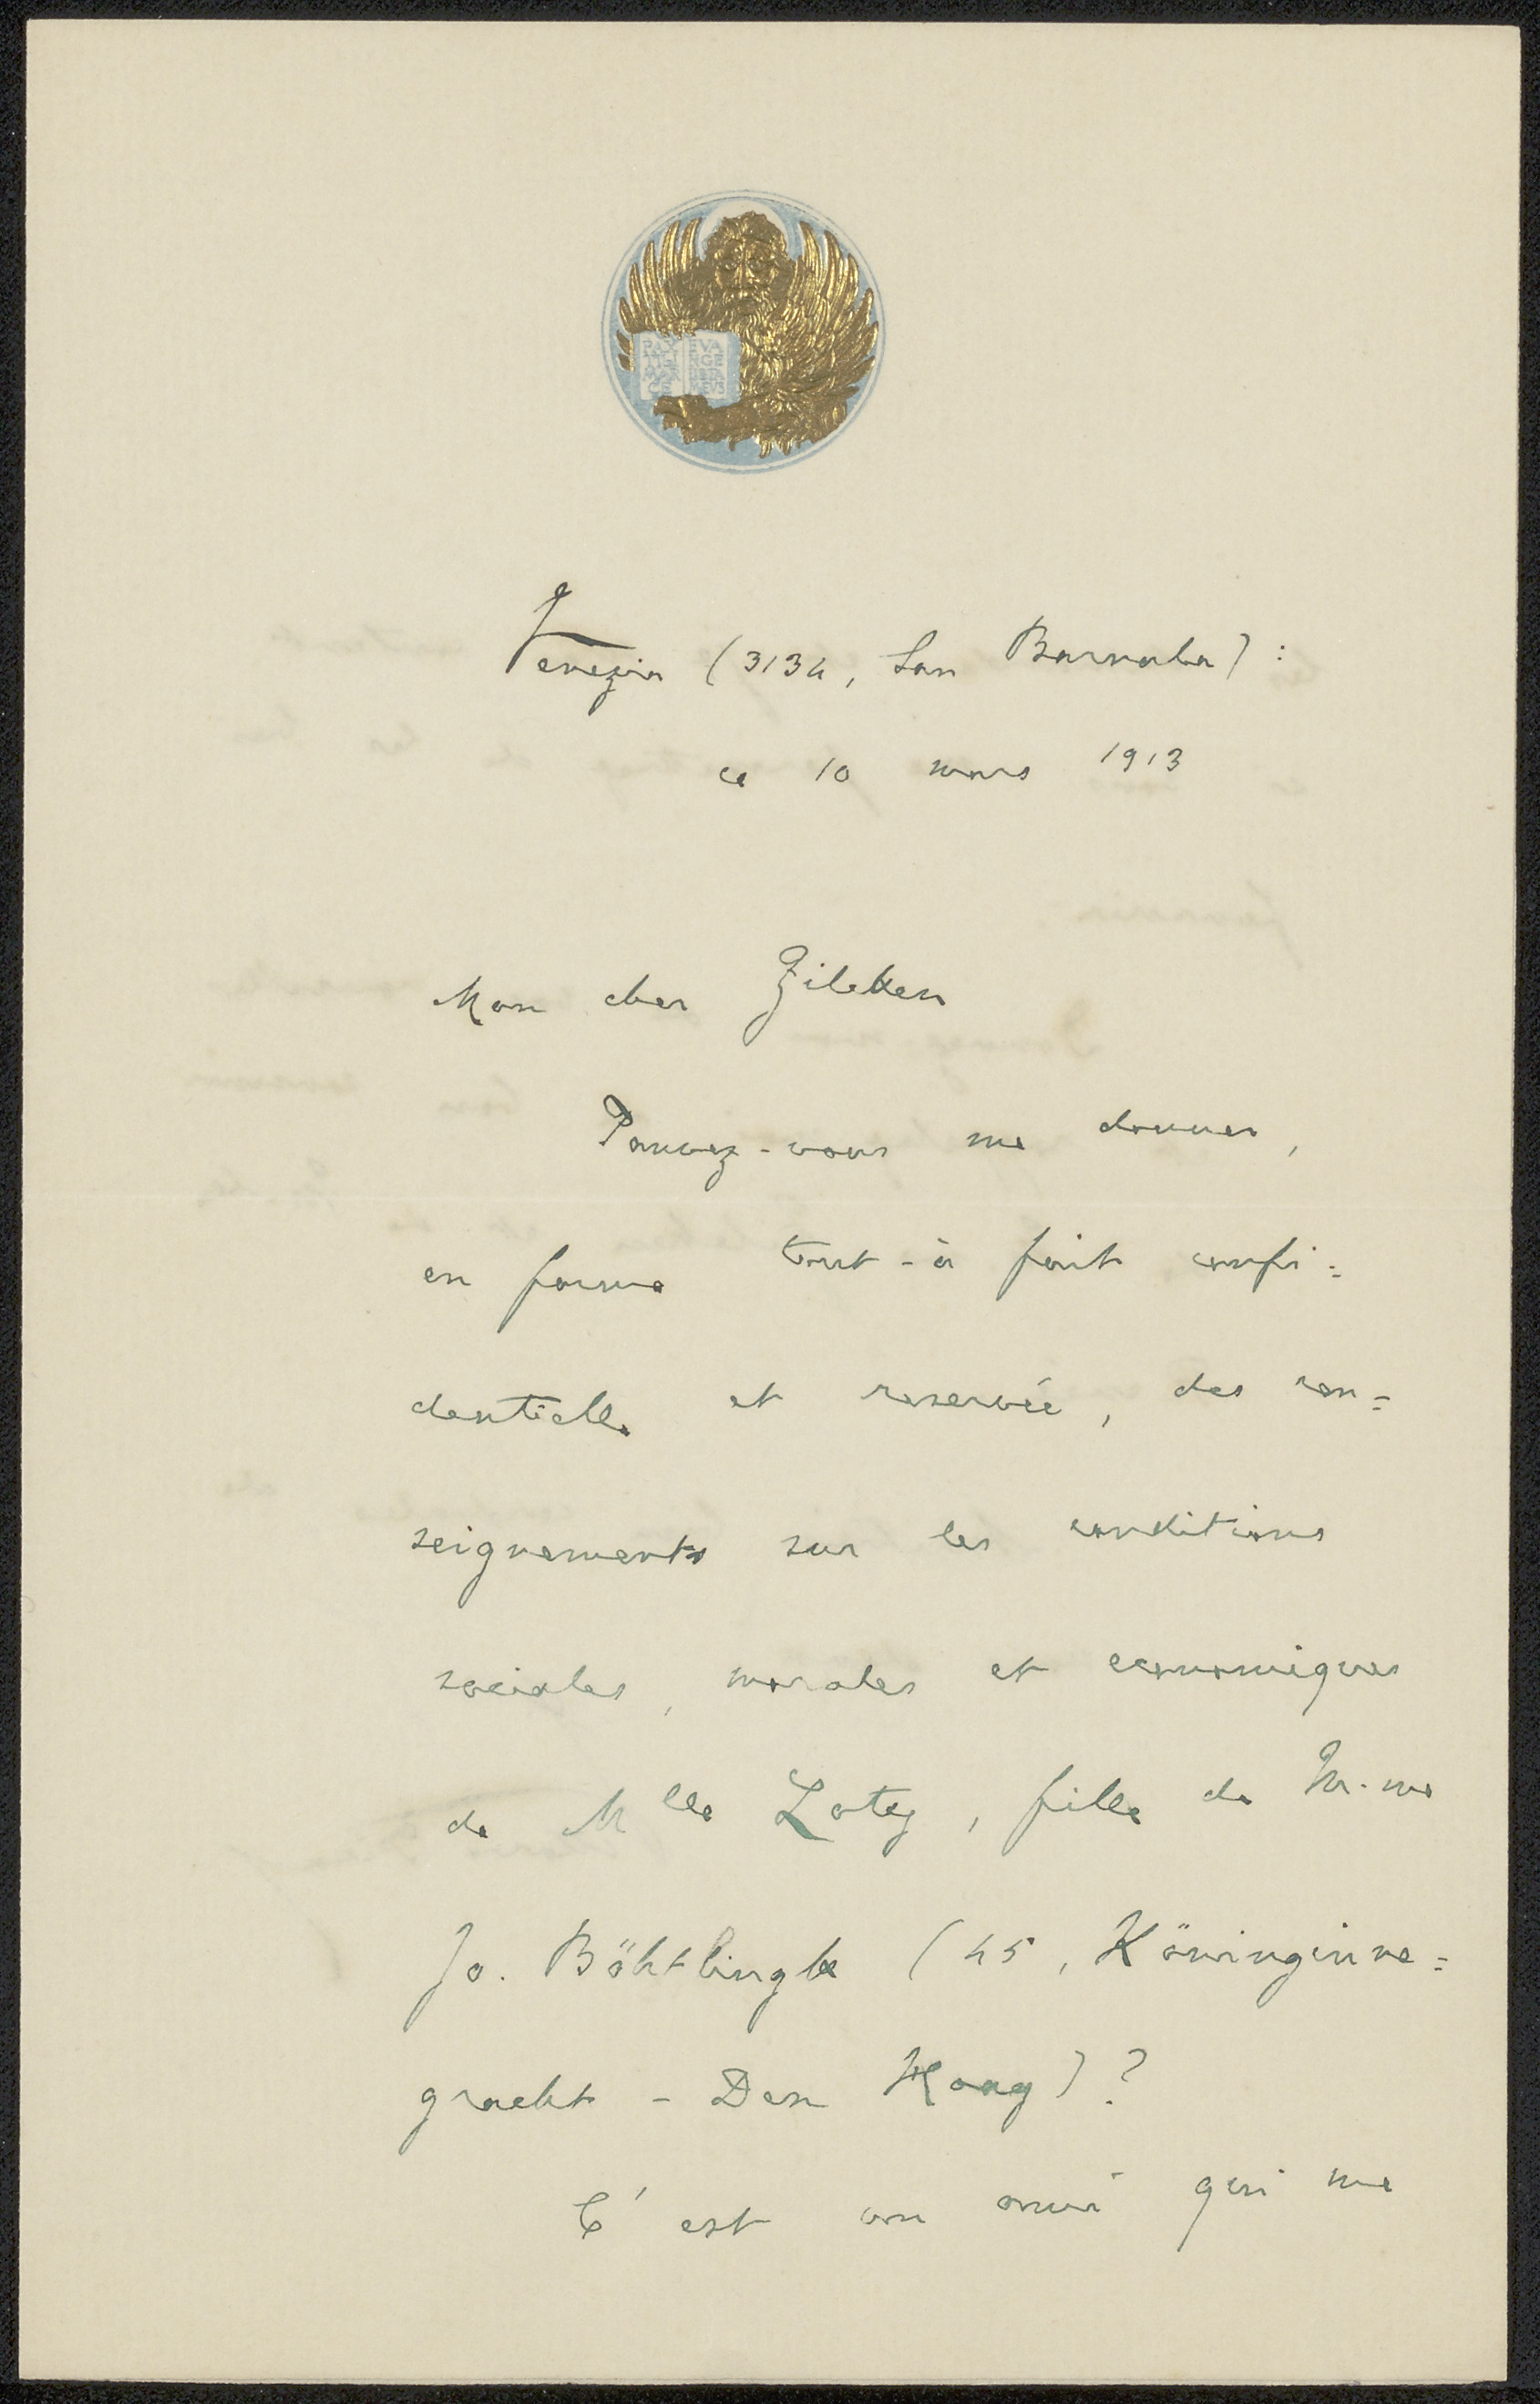 PAX EVA
TIBI NGE
MAR LISTA
CE MEVS
Venezia (3134, San Barnaba) :
ce 10 mars 1913
Mon cher Zilcken
Pouvez-vous me donner,
en forme tout-à fait confi=
dentielle et reservée, des ren=
seignements sur les conditions
sociales, morales et economiques
de Mlle Loty, fille de M.me
Jo. Böhtlingk (45, Köninginne=
gracht - Den Haag)?
C'est un ami qui me